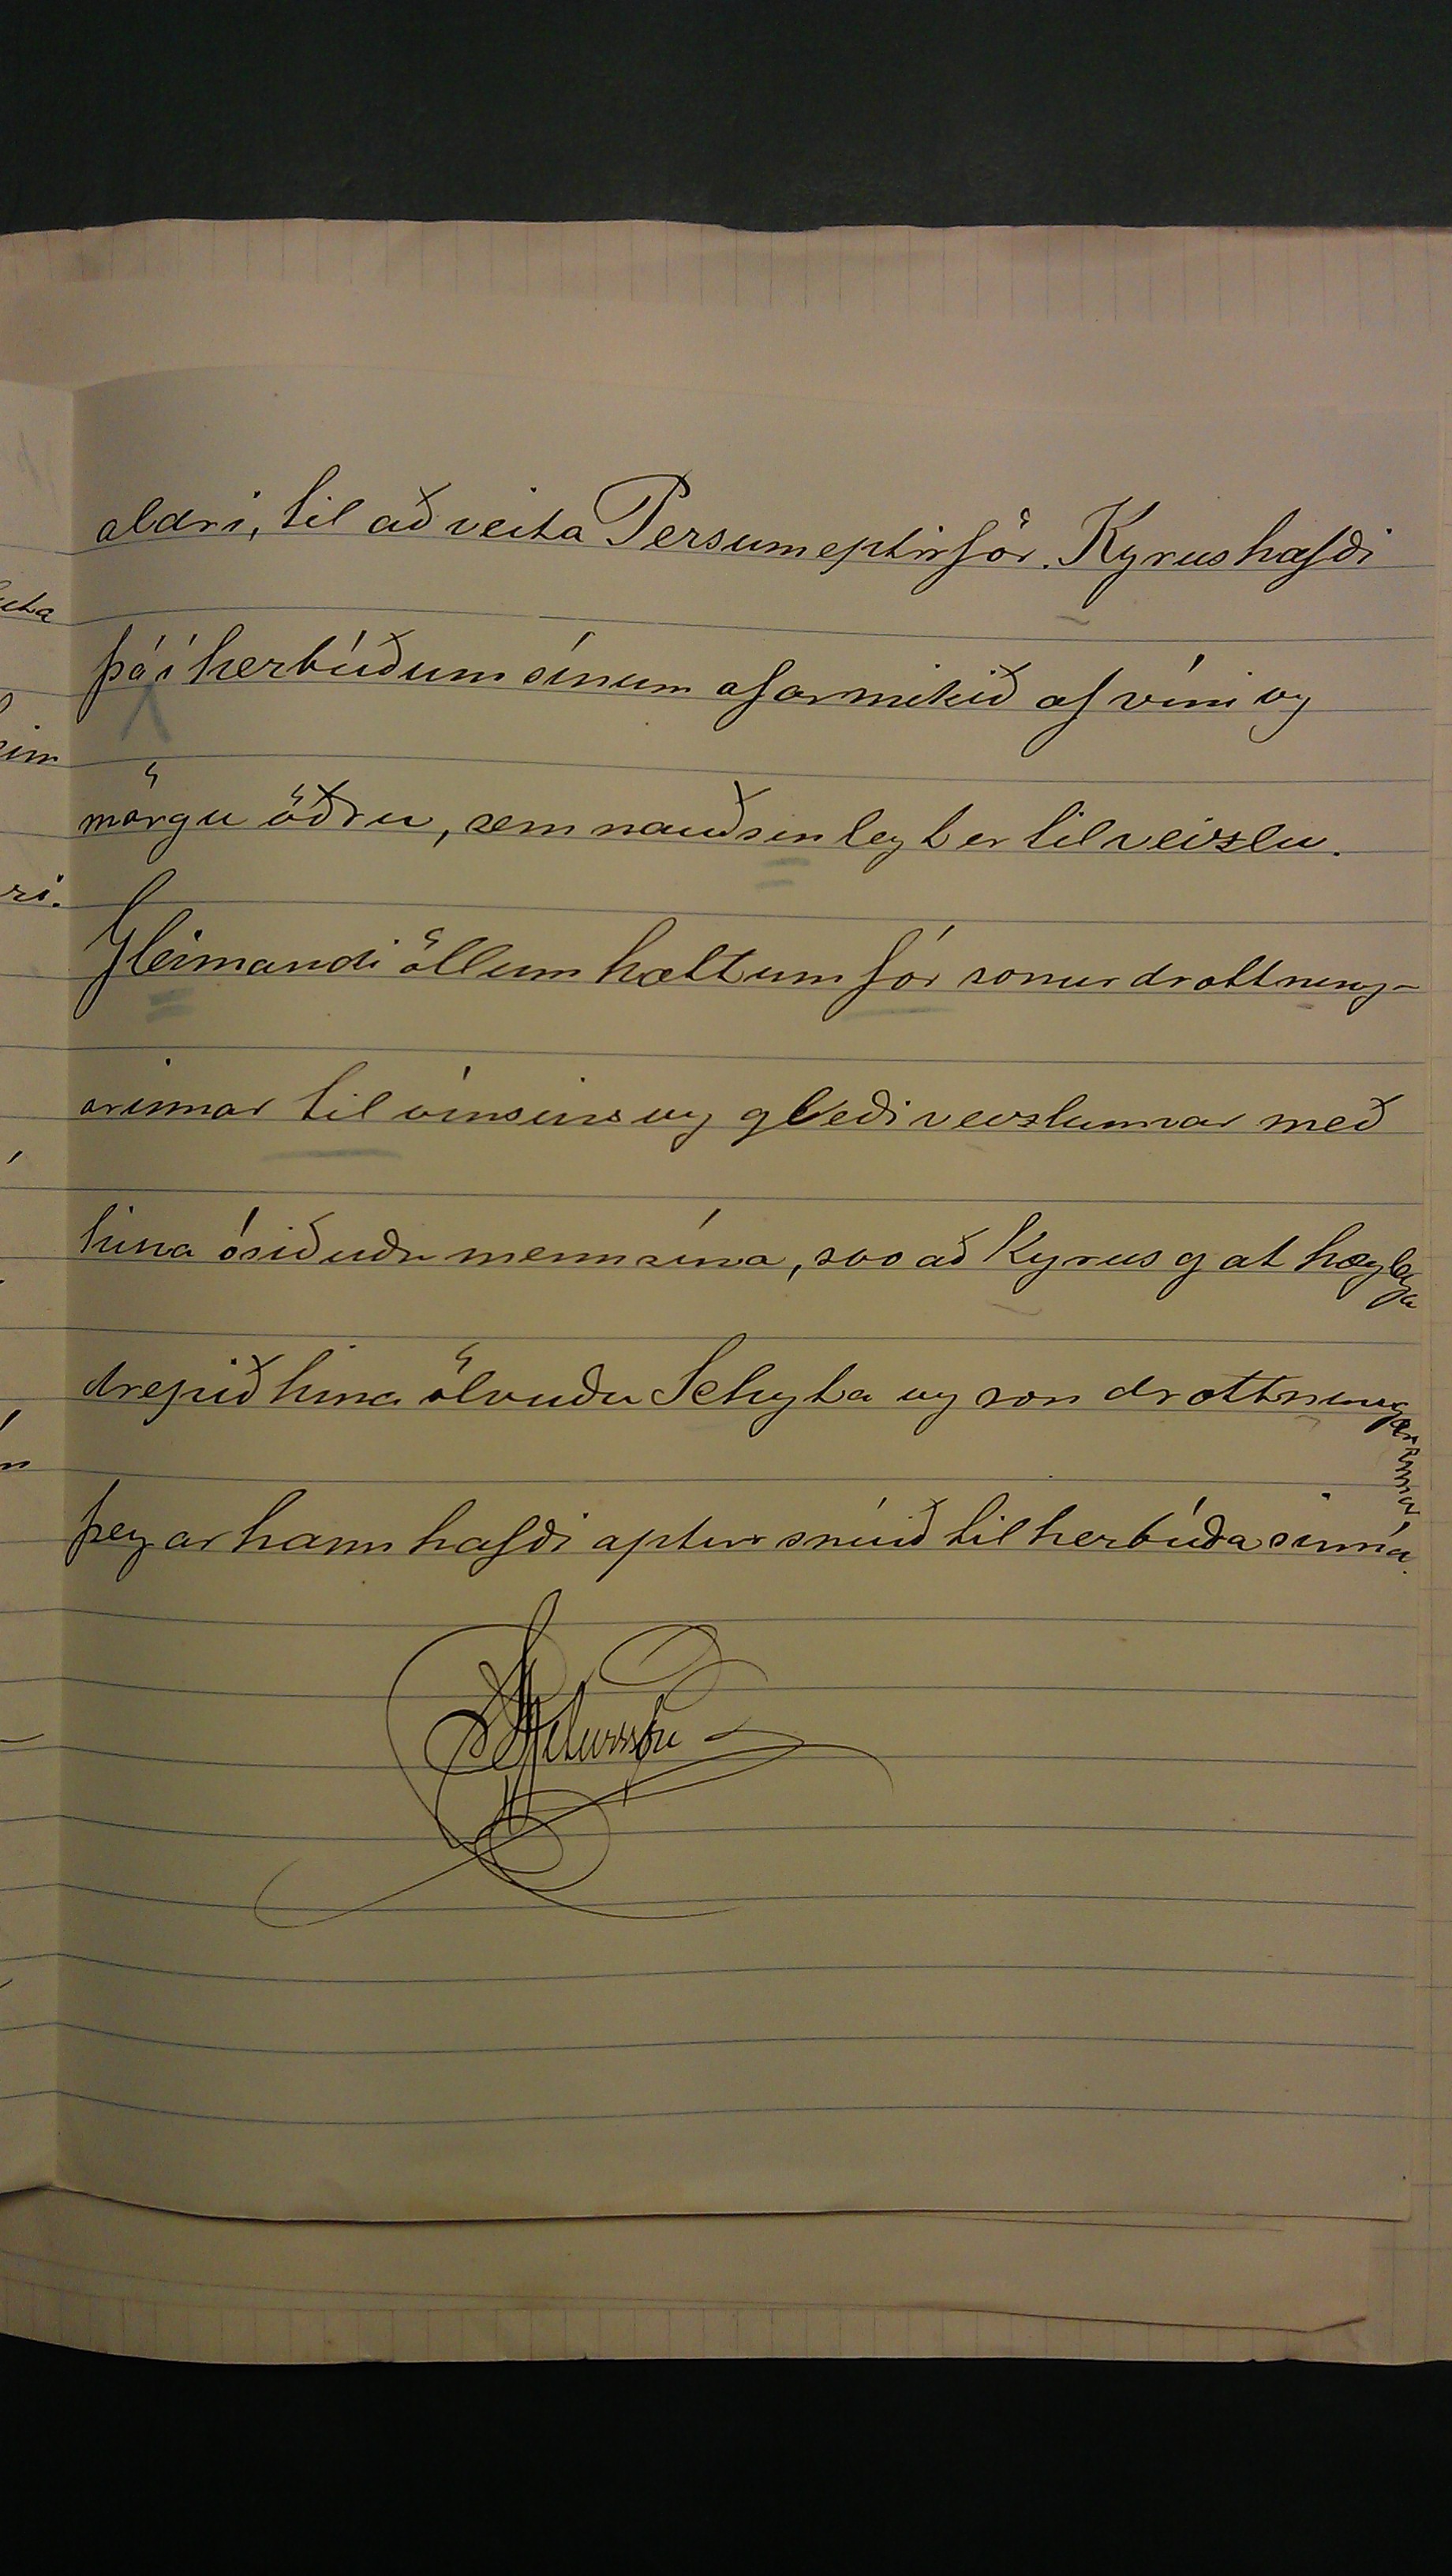 aldri, til að veita Persum eptirför. Kyrus hafði
þá í herbúðum sínum afarmikið af víni og
mörgu öðru, sem nauðsinlegt er til veizlu.
Gleimandi öllum hættum fór sonur drottning-
arinnar til vínsins og gleði veizlunnar með
hina ósiðuðu menn sína, svo að Kyrus gat hæglega
drepið hina ölvuðu Schyta og son drottningarinnar,
þegar hann hafði aptur snúið til herbúða sinna.